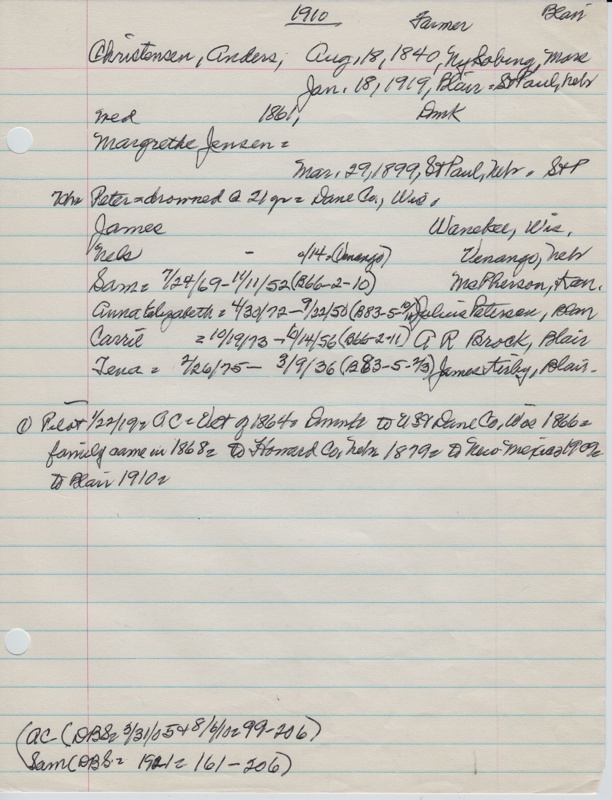 1910 Farmer Blair
Christensen, Anders, Aug. 18, 1840, Nykobing, Mors
Jan. 18, 1919, Blair = St Paul, Nebr
med 1861, Dmk
Margrethe Jensen =
Mar. 29, 1899, St Paul, Nebr. StP
Peter = drowned @ 21 yr = Dane Co., Wis.
James Wanekee, Wis.
Nels - (Venango) Venango, Nebr
Sam = 7/24/69 - 11/11/52 (B66-2-10) McPherson, Kan.
Anna Elizabeth = 4/30/72 - 9/22/50 (B83-5-) Julius Petersen, Blair
Carrie = 10/19/73 - 10/14/56 (B66-2-11) A R Brock, Blair
Tena = 2/26/75 - 3/9/36 (B83-5-2/3) James Kirby, Blair -
① Pilot 1/22/19 = AC = Vet of 1864 = Dnmk to USA Dane Co, Wis 1866 =
family came in 1868 = to Howard Co, Nebr 1879 = to New Mexico 1909 =
to Blair 1910 =
(AC (DBS = 3/31/05 + 8/6/0 = 99-206)
Sam (DBS = 1921 = 161-206)